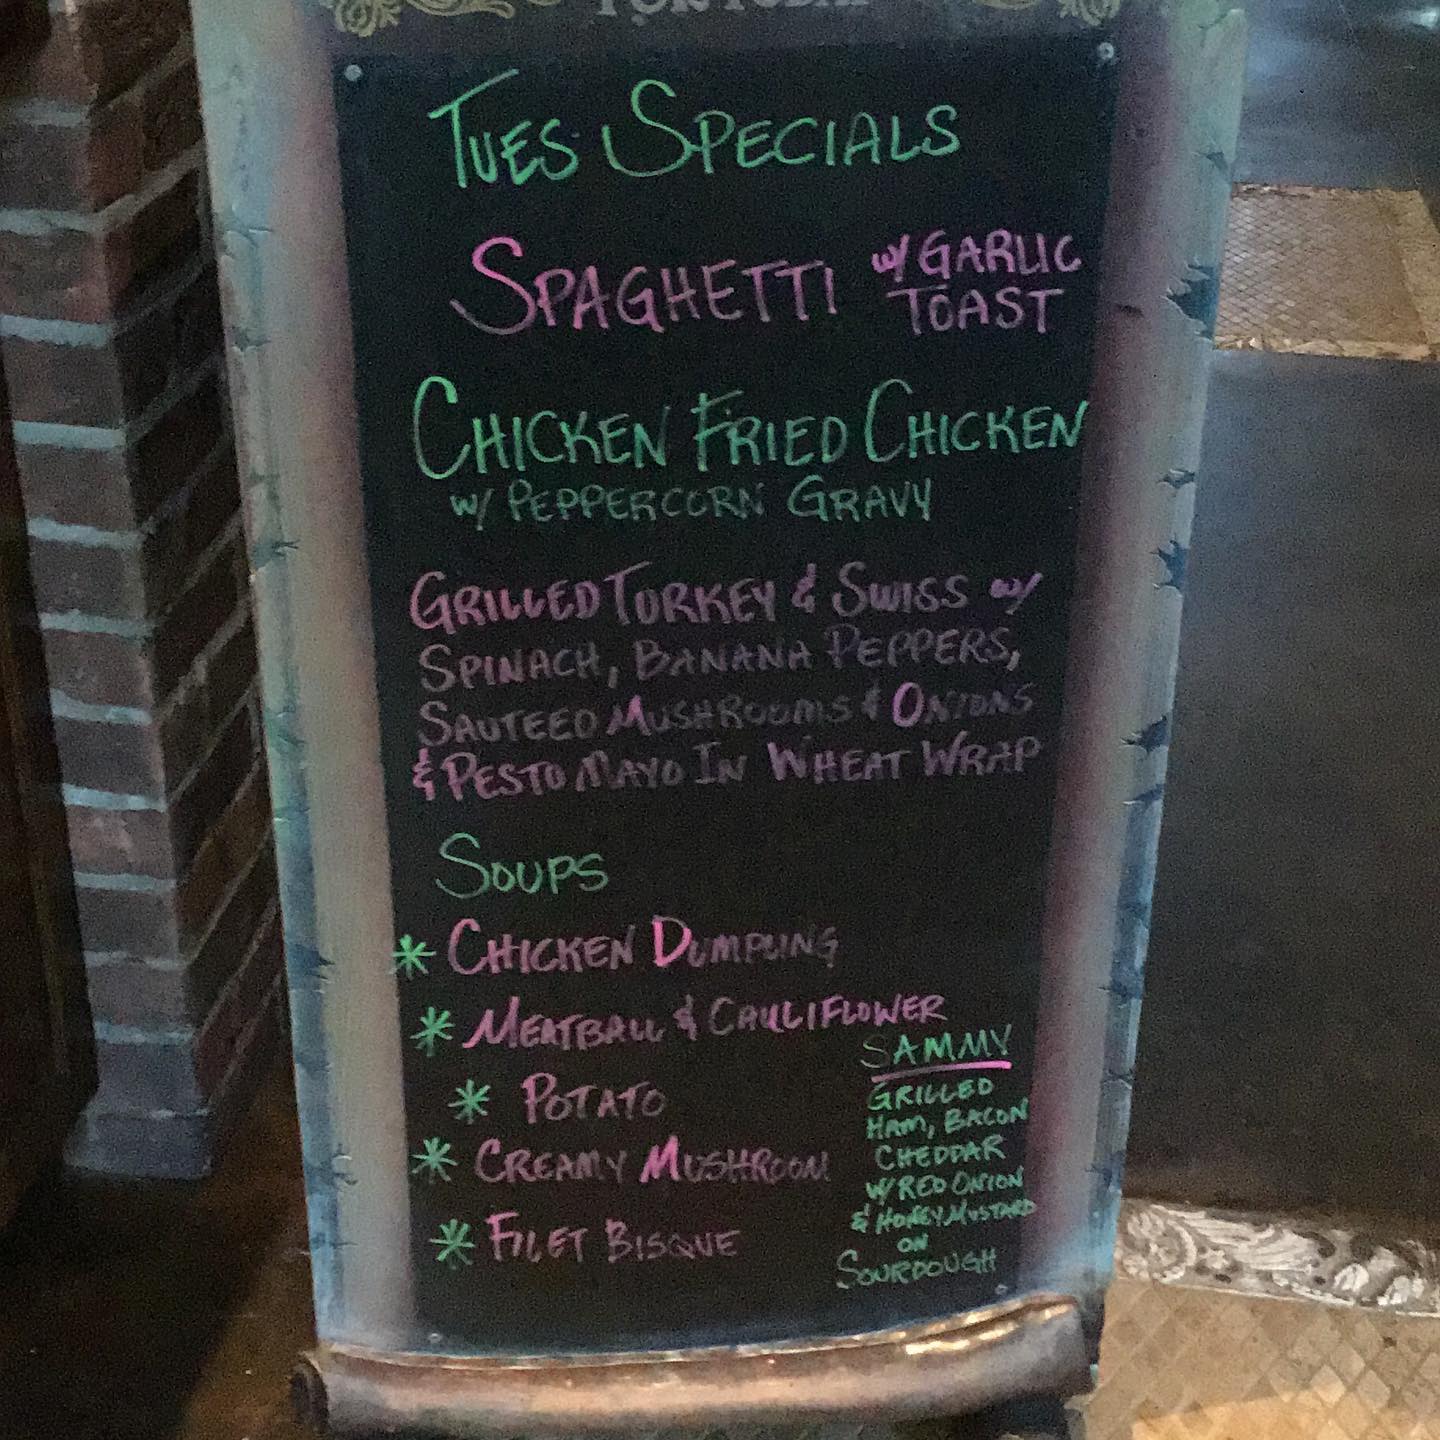 FOR TODAY
TUES. SPECIALS
SPAGHETTI w/ GARLIC
TOAST
CHICKEN FRIED CHICKEN
w/ PEPPERCORN GRAVY
GRILLED TURKEY & SWISS w/
SPINACH, BANANA PEPPERS,
SAUTEED MUSHROOMS & ONIONS
& PESTO MAYO IN WHEAT WRAP
SOUPS
* CHICKEN DUMPLING
* MEATBALL & CAULIFLOWER
* POTATO
* CREAMY MUSHROOM
* FILET BISQUE
SAMMY
GRILLED
HAM, BACON
CHEDDAR
W/ RED ONION
& HONEY MUSTARD
ON
SOURDOUGH